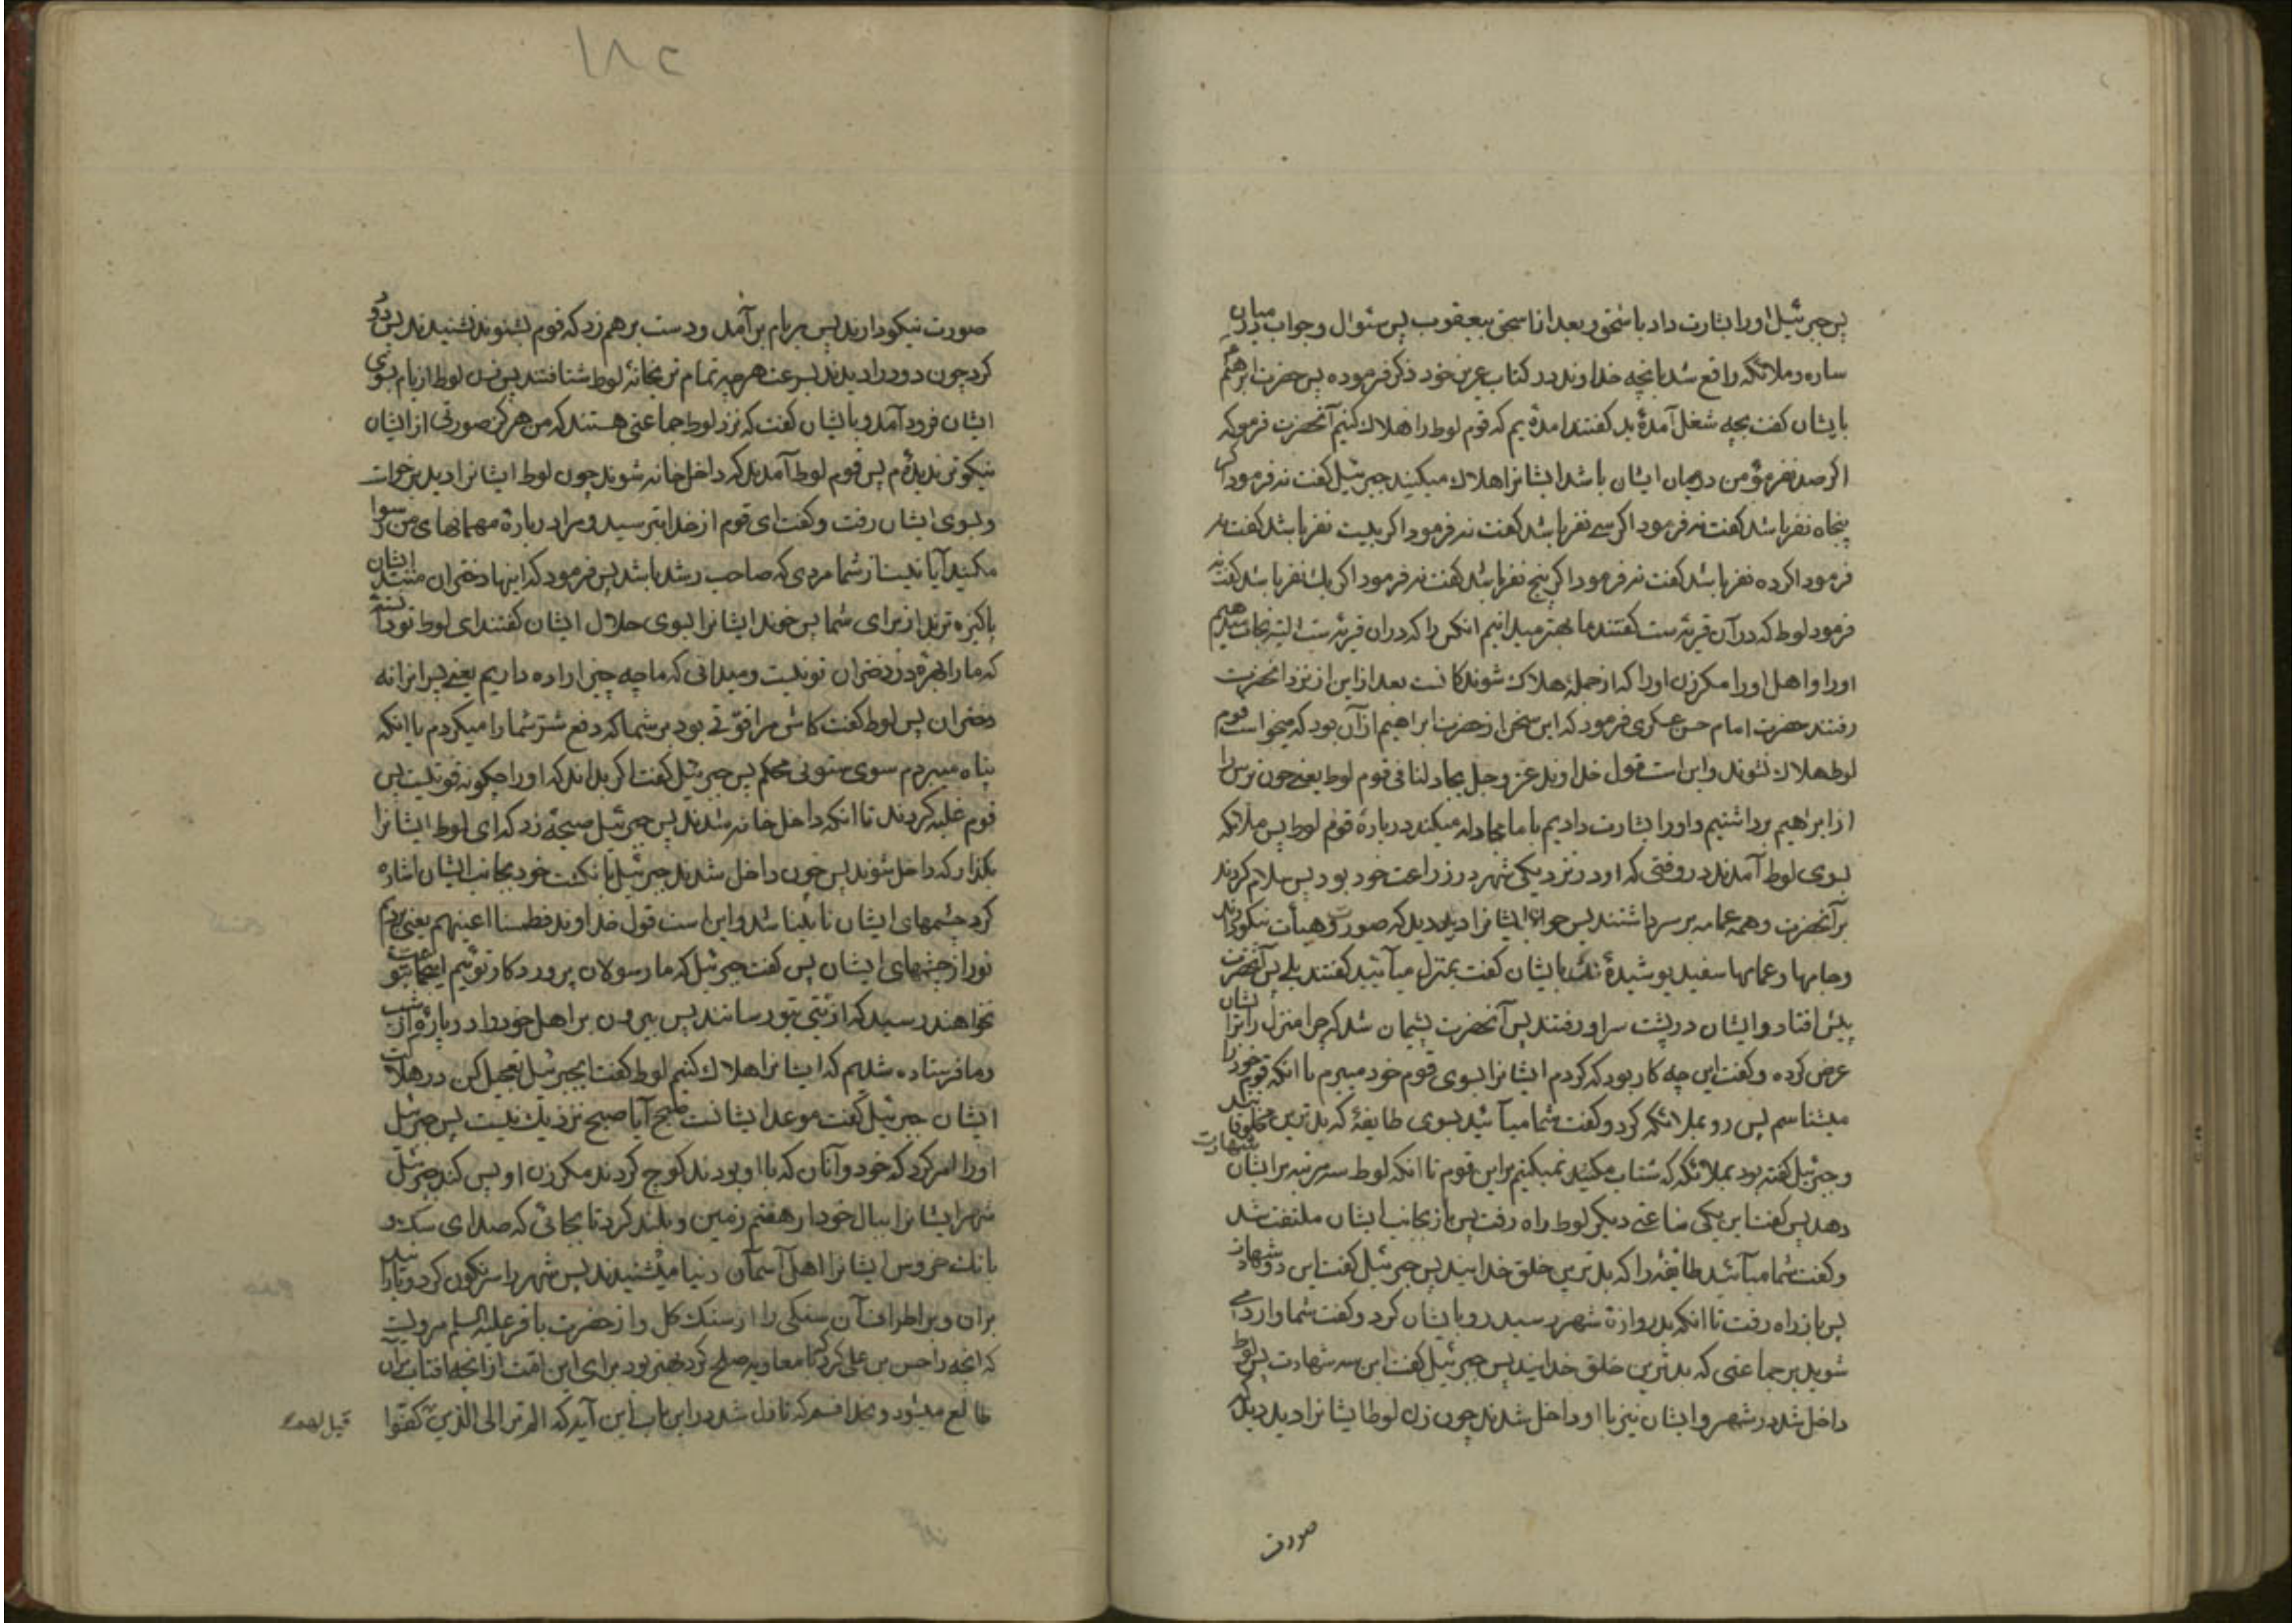 پس جبرئیل او را بشارت داد باسحق و بعد از اسحق بیعقوب پس سئوال و جواب میان
ساره و ملائکه واقع شد بانچه خداوند در کتاب عزیز خود ذکر فرموده پس حضرت ابرهیم
بایشان گفت بچه شغل آمدهٔ ید گفتند امدهٔ یم که قوم لوط را هلاک کنیم آنحضرت فرمود که
اگر صد نفر مؤمن در میان ایشان باشد ایشانرا هلاک میکنید جبرئیل گفت نه فرمود اگر
پنجاه نفر باشد گفت نه فرمود اگر سی نفر باشد گفت نه فرمود اگر بیست نفر باشد گفت نه
فرمود اگر ده نفر باشد گفت نه فرمود اگر پنج نفر باشد گفت نه فرمود اگر یک نفر باشد گفت نه
فرمود لوط که در آن قریه ست گفتند ما بهتر میدانیم انکس را که دران قریه ست البته نجات میدهیم
او را و اهل او را مگر زن او را که از جملهٔ هلاک شوندکانست بعد از این از نزد انحضرت
رفتند حضرت امام حسن عسکری فرمود که این سخن از حضرت ابراهیم از آن بود که میخواست قوم
لوط هلاک نشوند و این است قول خداوند عز و جل یجادلنا فی قوم لوط یعنی چون ترس را
از ابراهیم برداشتیم و او را بشارت دادیم با ما مجادله میکند در بارهٔ قوم لوط پس ملائکه
بسوی لوط آمدند در وقتی که او در نزدیکی شهر در زراعت خود بود پس سلام کردند
بر آنحضرت و همه عمامه بر سر داشتند پس چون ایشانرا دید دید که صورت و هیأت نیکو دارند
و جامها و عمامها سفید پوشیدهٔ ند بایشان گفت بمنزل میآئید گفتند بلی پس آنحضرت
پیش افتاد و ایشان در پشت سر او رفتند پس آنحضرت پشیمان شد که چرا منزل را بایشان
عرض کرده و گفت این چه کار بود که کردم ایشانرا بسوی قوم خود میبرم با انکه قوم خود را
میشناسم پس رو بملائکه کرد و گفت شما میآئید بسوی طایفهٔ که بدترین مخلوقاتند
و جبرئیل گفته بود بملائکه که شتاب مکنید نمیکنیم بر این قوم تا انکه لوط سه مرتبه بر ایشان شهادت
دهد پس گفت این یکی ساعتی دیگر لوط راه رفت پس باز بجانب ایشان ملتفت شد
و گفت شما میآئید طایفهٔ را که بدترین خلق خدایند پس جبرئیل گفت این دو شهادت
پس باز راه رفت تا انکه بدروازهٔ شهر رسید رو بایشان کرد و گفت شما وارد می
شوید بر جماعتی که بدترین خلق خدایند پس جبرئیل گفت این سه شهادت پس لوط
داخل شد در شهر و ایشان نیز با او داخل شدند چون زن لوط ایشانرا دید دید که
صورت
۱۸۲
صورت نیکو دارند پس بر بام بر آمد و دست بر هم زد که قوم بشنوند نشنیدند پس دود
کرد چون دود را دیدند بسرعت هر چه تمام تر بخانهٔ لوط شتافتند پس زن لوط از بام بسوی
ایشان فرود آمد و بایشان گفت که نزد لوط جماعتی هستند که من هرگز صورتی از ایشان
نیکوتر ندیدهٔ م پس قوم لوط آمدند که داخل خانه شوند چون لوط ایشانرا دید برخواست
و بسوی ایشان رفت و گفت ای قوم از خدا بترسید و مرا در بارهٔ مهمانهای من رسوا
مکنید آیا نیست از شما مردی که صاحب رشد باشد پس فرمود که اینها دختران منند ایشان
پاکیزه ترند از برای شما پس خوند ایشانرا بسوی حلال ایشان گفتند ای لوط تو دانستهٔ
که ما را بهرهٔ در دختران تو نیست و میدانی که ما چه چیز اراده داریم یعنی پسرانرا نه
دختران پس لوط گفت کاش مرا قوّتی بود بر شما که دفع شر شما را میکردم یا انکه
پناه میبردم سوی ستونی محکم پس جبرئیل گفت اگر بداند که او را چگونه قوتیست پس
قوم غلبه کردند تا انکه داخل خانه شدند پس جبرئیل صیحهٔ زد که ای لوط ایشانرا
بگذار که داخل شوند پس چون داخل شدند جبرئیل بانگشت خود بجانب ایشان اشاره
کرد چشمهای ایشان نابینا شد و این است قول خداوند فطمسنا اعینهم یعنی بردیم
نور از چشمهای ایشان پس گفت جبرئیل که ما رسولان پروردکار توئیم اینجماعت بتو
نخواهند رسید که اذیتی بتو رسانند پس بیرون بر اهل خود را در پارهٔ از شب
و ما فرستاده شدیم که ایشانرا هلاک کنیم لوط گفت ایجبرئیل تعجیل کن در هلاکت
ایشان جبرئیل گفت موعد ایشانست صبح آیا صبح نزدیک نیست پس جبرئیل
او را امر کرد که خود و آنان که با او بودند کوچ کردند مگر زن او پس کند جبرئیل
شهر ایشانرا ببال خود از هفتم زمین و بلند کرد تا بجائی که صدای سک و
بانک خروس ایشانرا اهل آسمان دنیا میشنیدند پس شهر را سرنگون کرد و بارانید
بر ان و بر اطراف آن سنگی را از سنک کل و از حضرت باقر علیه السلم مرویست
که انچه را حسن بن علی کرد که با معاویه صلح کرد بهتر بود برای این امّت از انچه افتاب بر آن
طالع میشود و بخدا قسم که نازل شد در این باب این آیه که الم تر الی الذین کفّوا
قیل لهم